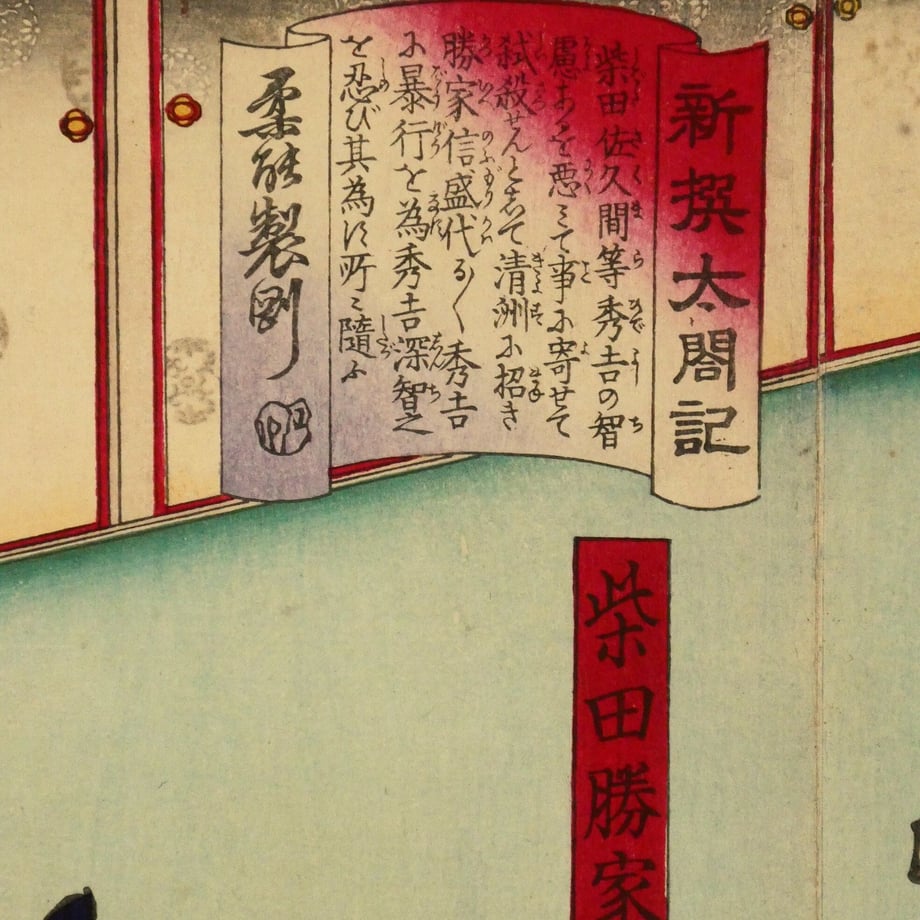 新撰太閤記
柴田佐久間等秀吉の智
慮あるを悪ミて事に寄せて
弑殺せんとして清洲に招き
勝家信盛代る〱秀吉
に暴行を為秀吉深智之
を忍び其為す所ニ随ふ
柔能製剛
柴田勝家